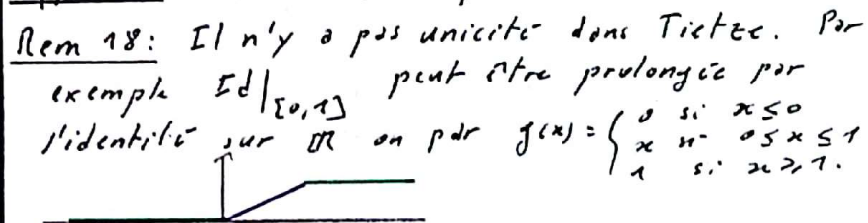 Rem 18: Il n'y a pas unicité dans Tietze. Par
exemple Id|[0,1] peut être prolongée par
l'identité sur ℝ ou par g(x) = { 0 si x ≤ 0
x si 0 ≤ x ≤ 1
1 si x ≥ 1.